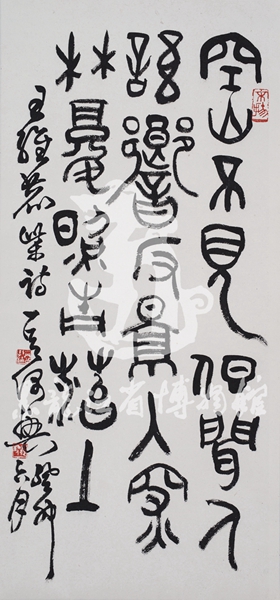 空山不見但聞人
語響返景入深
林復照青苔上
王維鹿柴詩
黑龍江省博物館